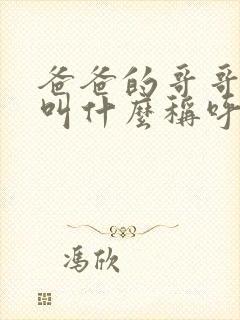 爸爸的哥哥
叫什麼稱呼
馮欣